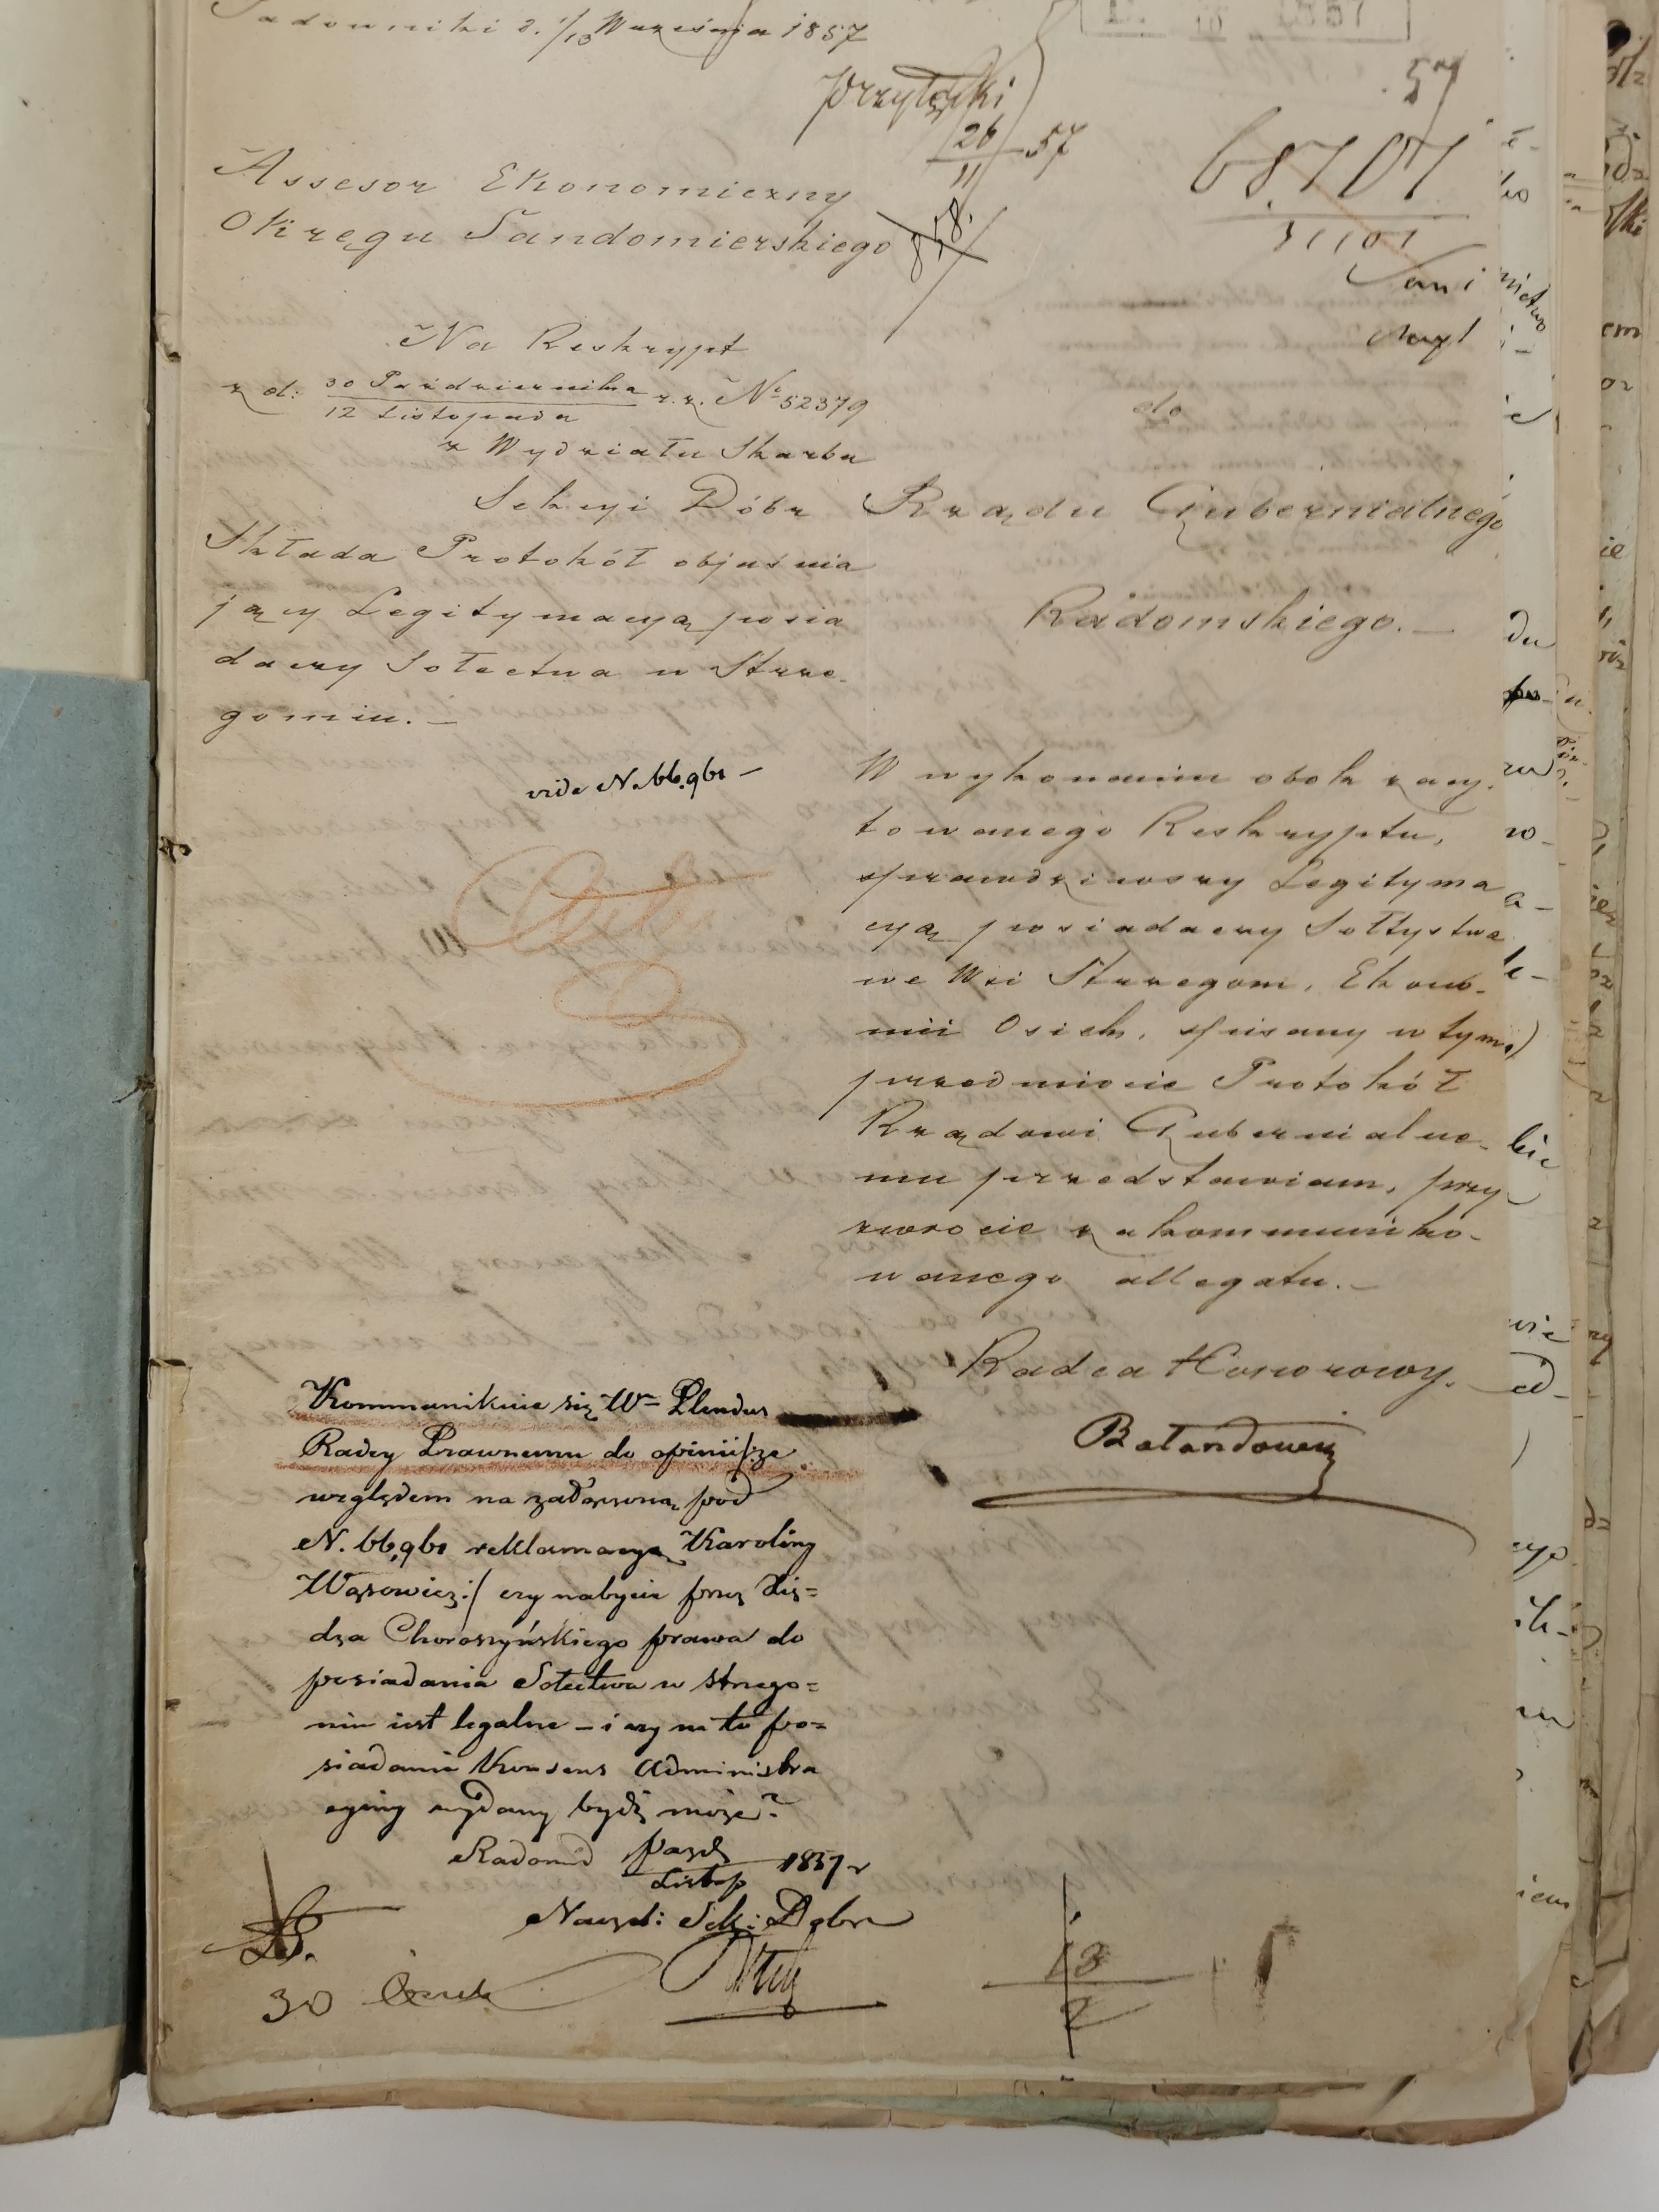 Sadowniki d. 1/13 Września 1857
57
26
11 57
68,707
Assesor Ekonomiczny
Okręgu Sandomierskiego
858.
Na Reskrypt
z d: 30 Października
12 Listopada r. z. № 52379
z Wydziału Skarbu
Sekcyi Dóbr
do
Rządu Gubernialnego
Radomskiego. —
Składa Protokół objaśnia
jący Legitymacyą posia
daczy Sołectwa w Strze-
gomiu. —
vide N. 66,961 —
W wykonaniu obok zacy-
towanego Reskryptu,
sprawdziwszy Legityma
cyą posiadaczy Sołtystwa
we Wsi Strzegom, Ekono-
mii Osiek, spisany w tym
przedmiocie Protokół
Rządowi Gubernialne-
mu przedstawiam, przy
zwrocie zakommuniko-
wanego allegatu. —
Radca Honorowy.
Kommunikuie się Wm Plendus
Radcy Prawnemu do opinii /:ze
względem na zadaszoną pod
N. 66,961 reklamacyą Karoliny
Wąsowicz:/ czy nabycie przez Xię=
dza Choroszyńskiego prawa do
posiadania Sołectwa w Strzego=
miu iest legalne – i czy na to po=
siadanie Konsens Administra
cyiny wydany bydź może?
Radom d Pazdz
Listop 1857 r
Naczel: Sek: Dóbr
30
13
2